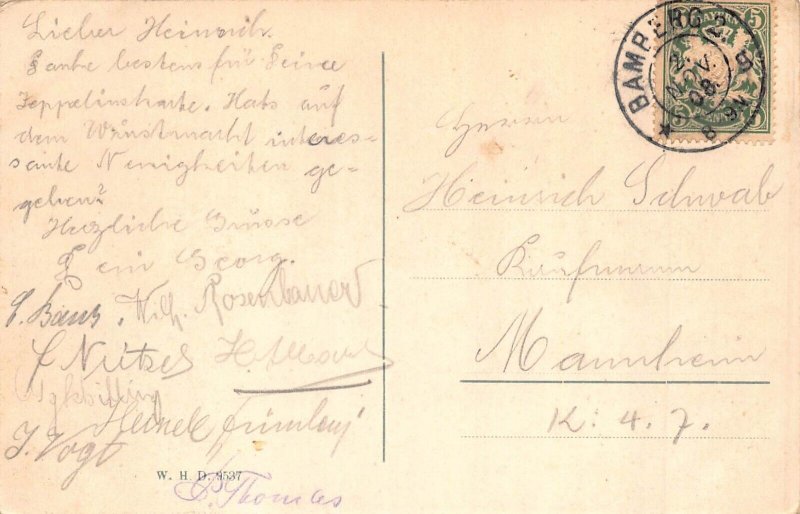 Lieber Heinrich.
Danke bestens für Deine
Zeppelinskarte. Hats auf
dem Wurstmarkt interes-
sante Neuigkeiten ge-
geben?
Herzliche Grüsse
Dein Georg.
Wilh. Rosenbauer
Nützel
Heinel
J. Vogt
Thomas
W. H. D. 9537
BAMBERG 2.
2. NOV. 08.
8-9V.
BAYERN
5 5
5 PFENNIG 5
Herrn
Heinrich Schwab
Kaufmann
Mannheim
K. 4. 7.